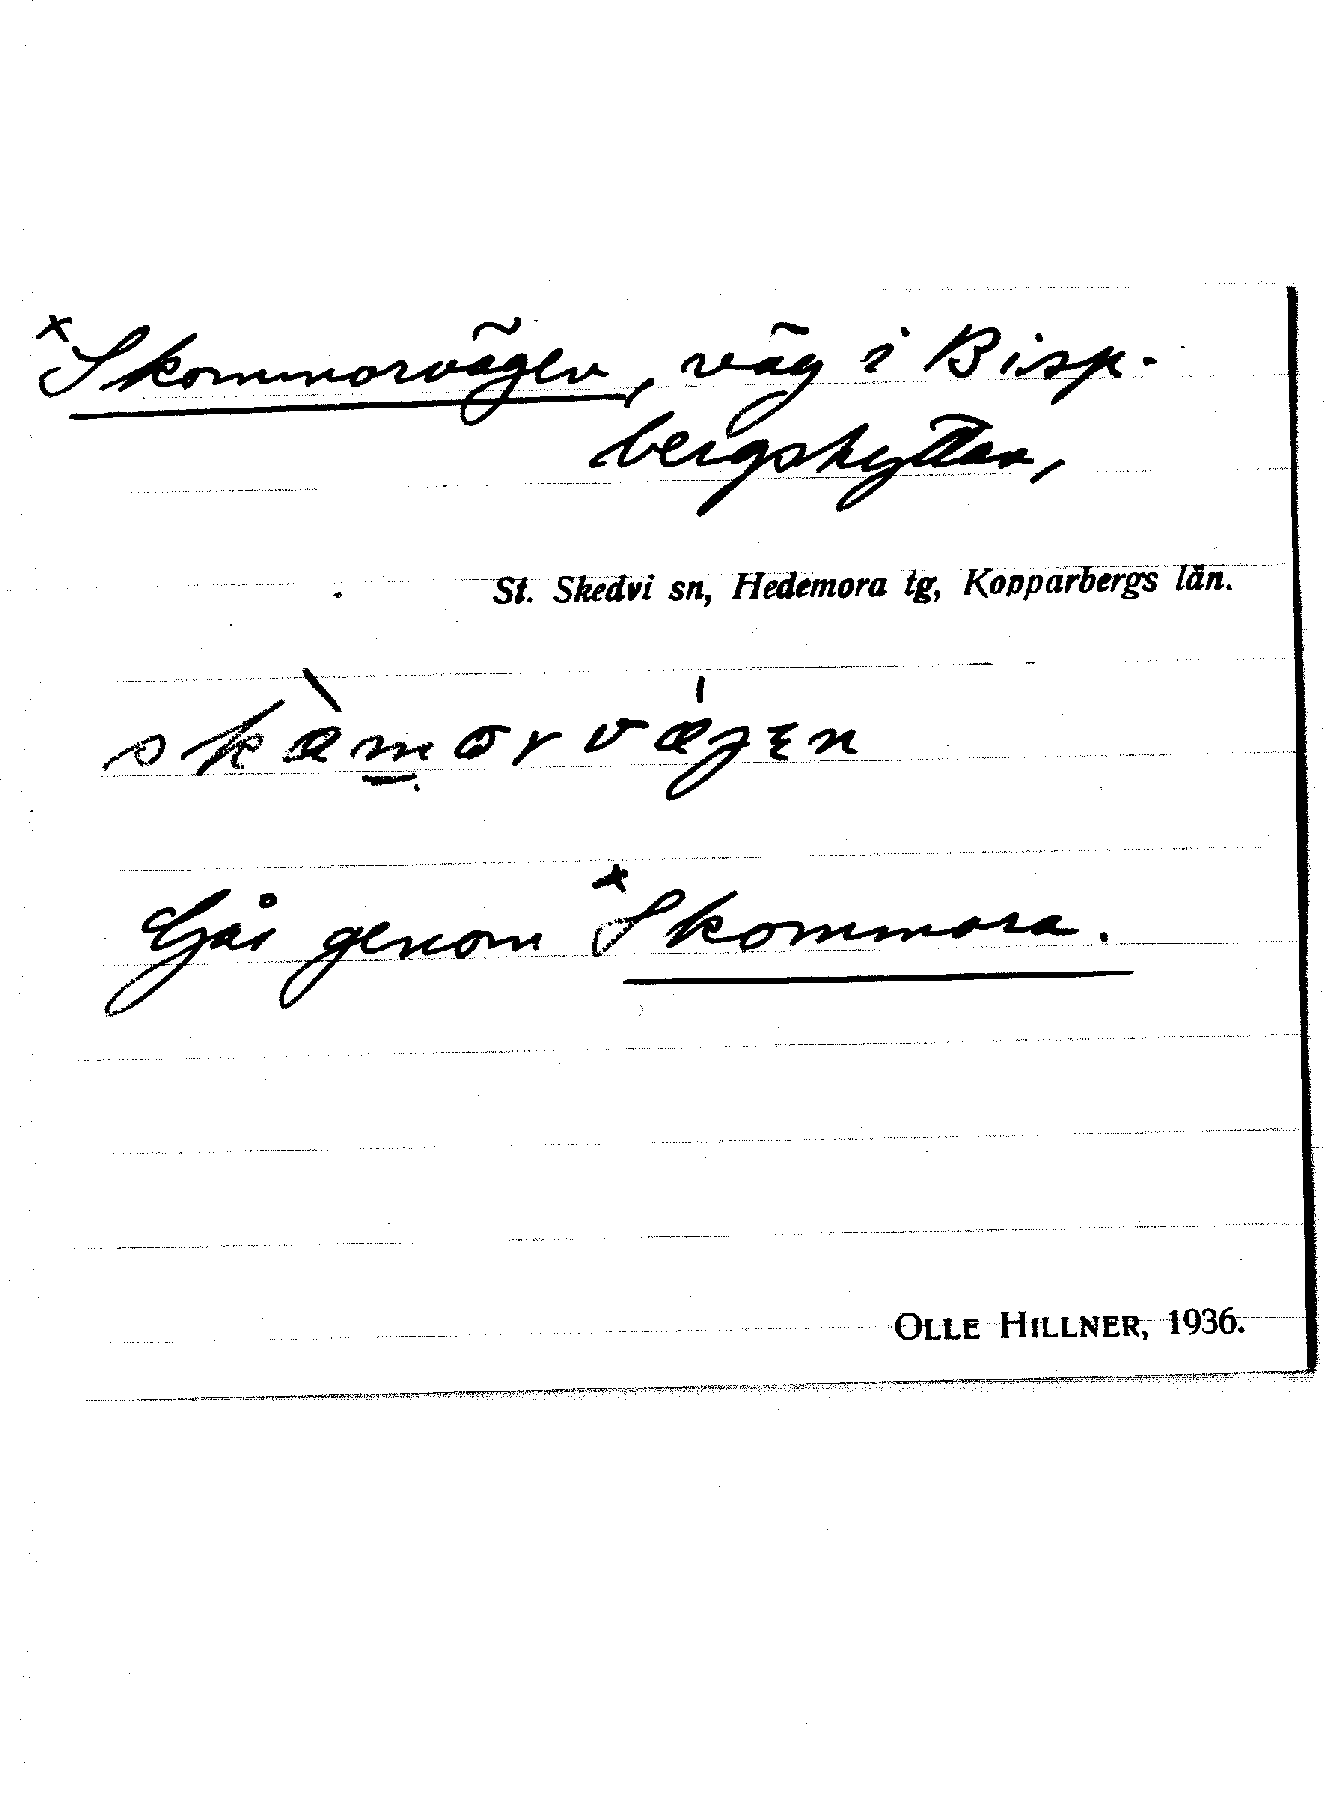 ×Skommorvägen, väg i Bisp-
bergshyttan,
St. Skedvi sn, Hedemora tg, Kopparbergs län.
skæ̀morvǽgen
Går genom ×Skommora.
OLLE HILLNER, 1936.